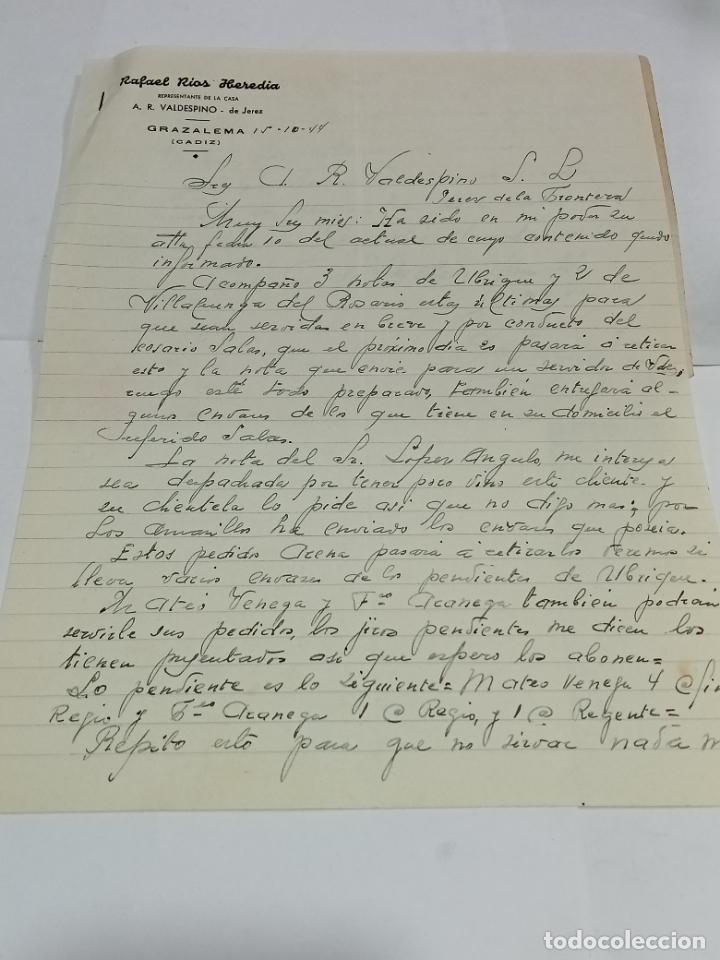 Rafael Rios Heredia
REPRESENTANTE DE LA CASA
A. R. VALDESPINO - de Jerez
GRAZALEMA 15-10-44
(CADIZ)
A. R. Valdespino S. L
Jerez de la Frontera
Muy Sres mios: Ha sido en mi poder su
atta fecha 10 del actual de cuyo contenido quedo
informado.
Acompaño 3 notas de Ubrique y 2 de
Villaluenga del Rosario estas últimas para
que sean servidas en breve y por conducto del
cosario Salas, que el próximo dia 20 pasará a retirar
esto y la nota que envie para un servidor de Vdes,
ruego esté todo preparado, también entregará al-
gunos envases de los que tiene en su domicilio el
referido Salas.
La nota del Sr. López Angulo, me interesa
sea despachada por tener poco vino este cliente y
su clientela lo pide asi que no digo mas; por
Los Amarillos ha enviado los envases que poseia.
Estos pedidos Arena pasará a retirarlos veremos si
lleva varios envases de los pendientes de Ubrique.
Mateo Venega y Fco Acanega también podrán
servirle sus pedidos, los jiros pendientes me dicen los
tienen presentados asi que espero los abonen=
Lo pendiente es lo siguiente= Mateo Venega 4 @
Regio y Fco Acanega 1 @ Regio, y 1 @ Regente=
Repito esto para que no sirvan nada
todocoleccion
todocoleccion.net